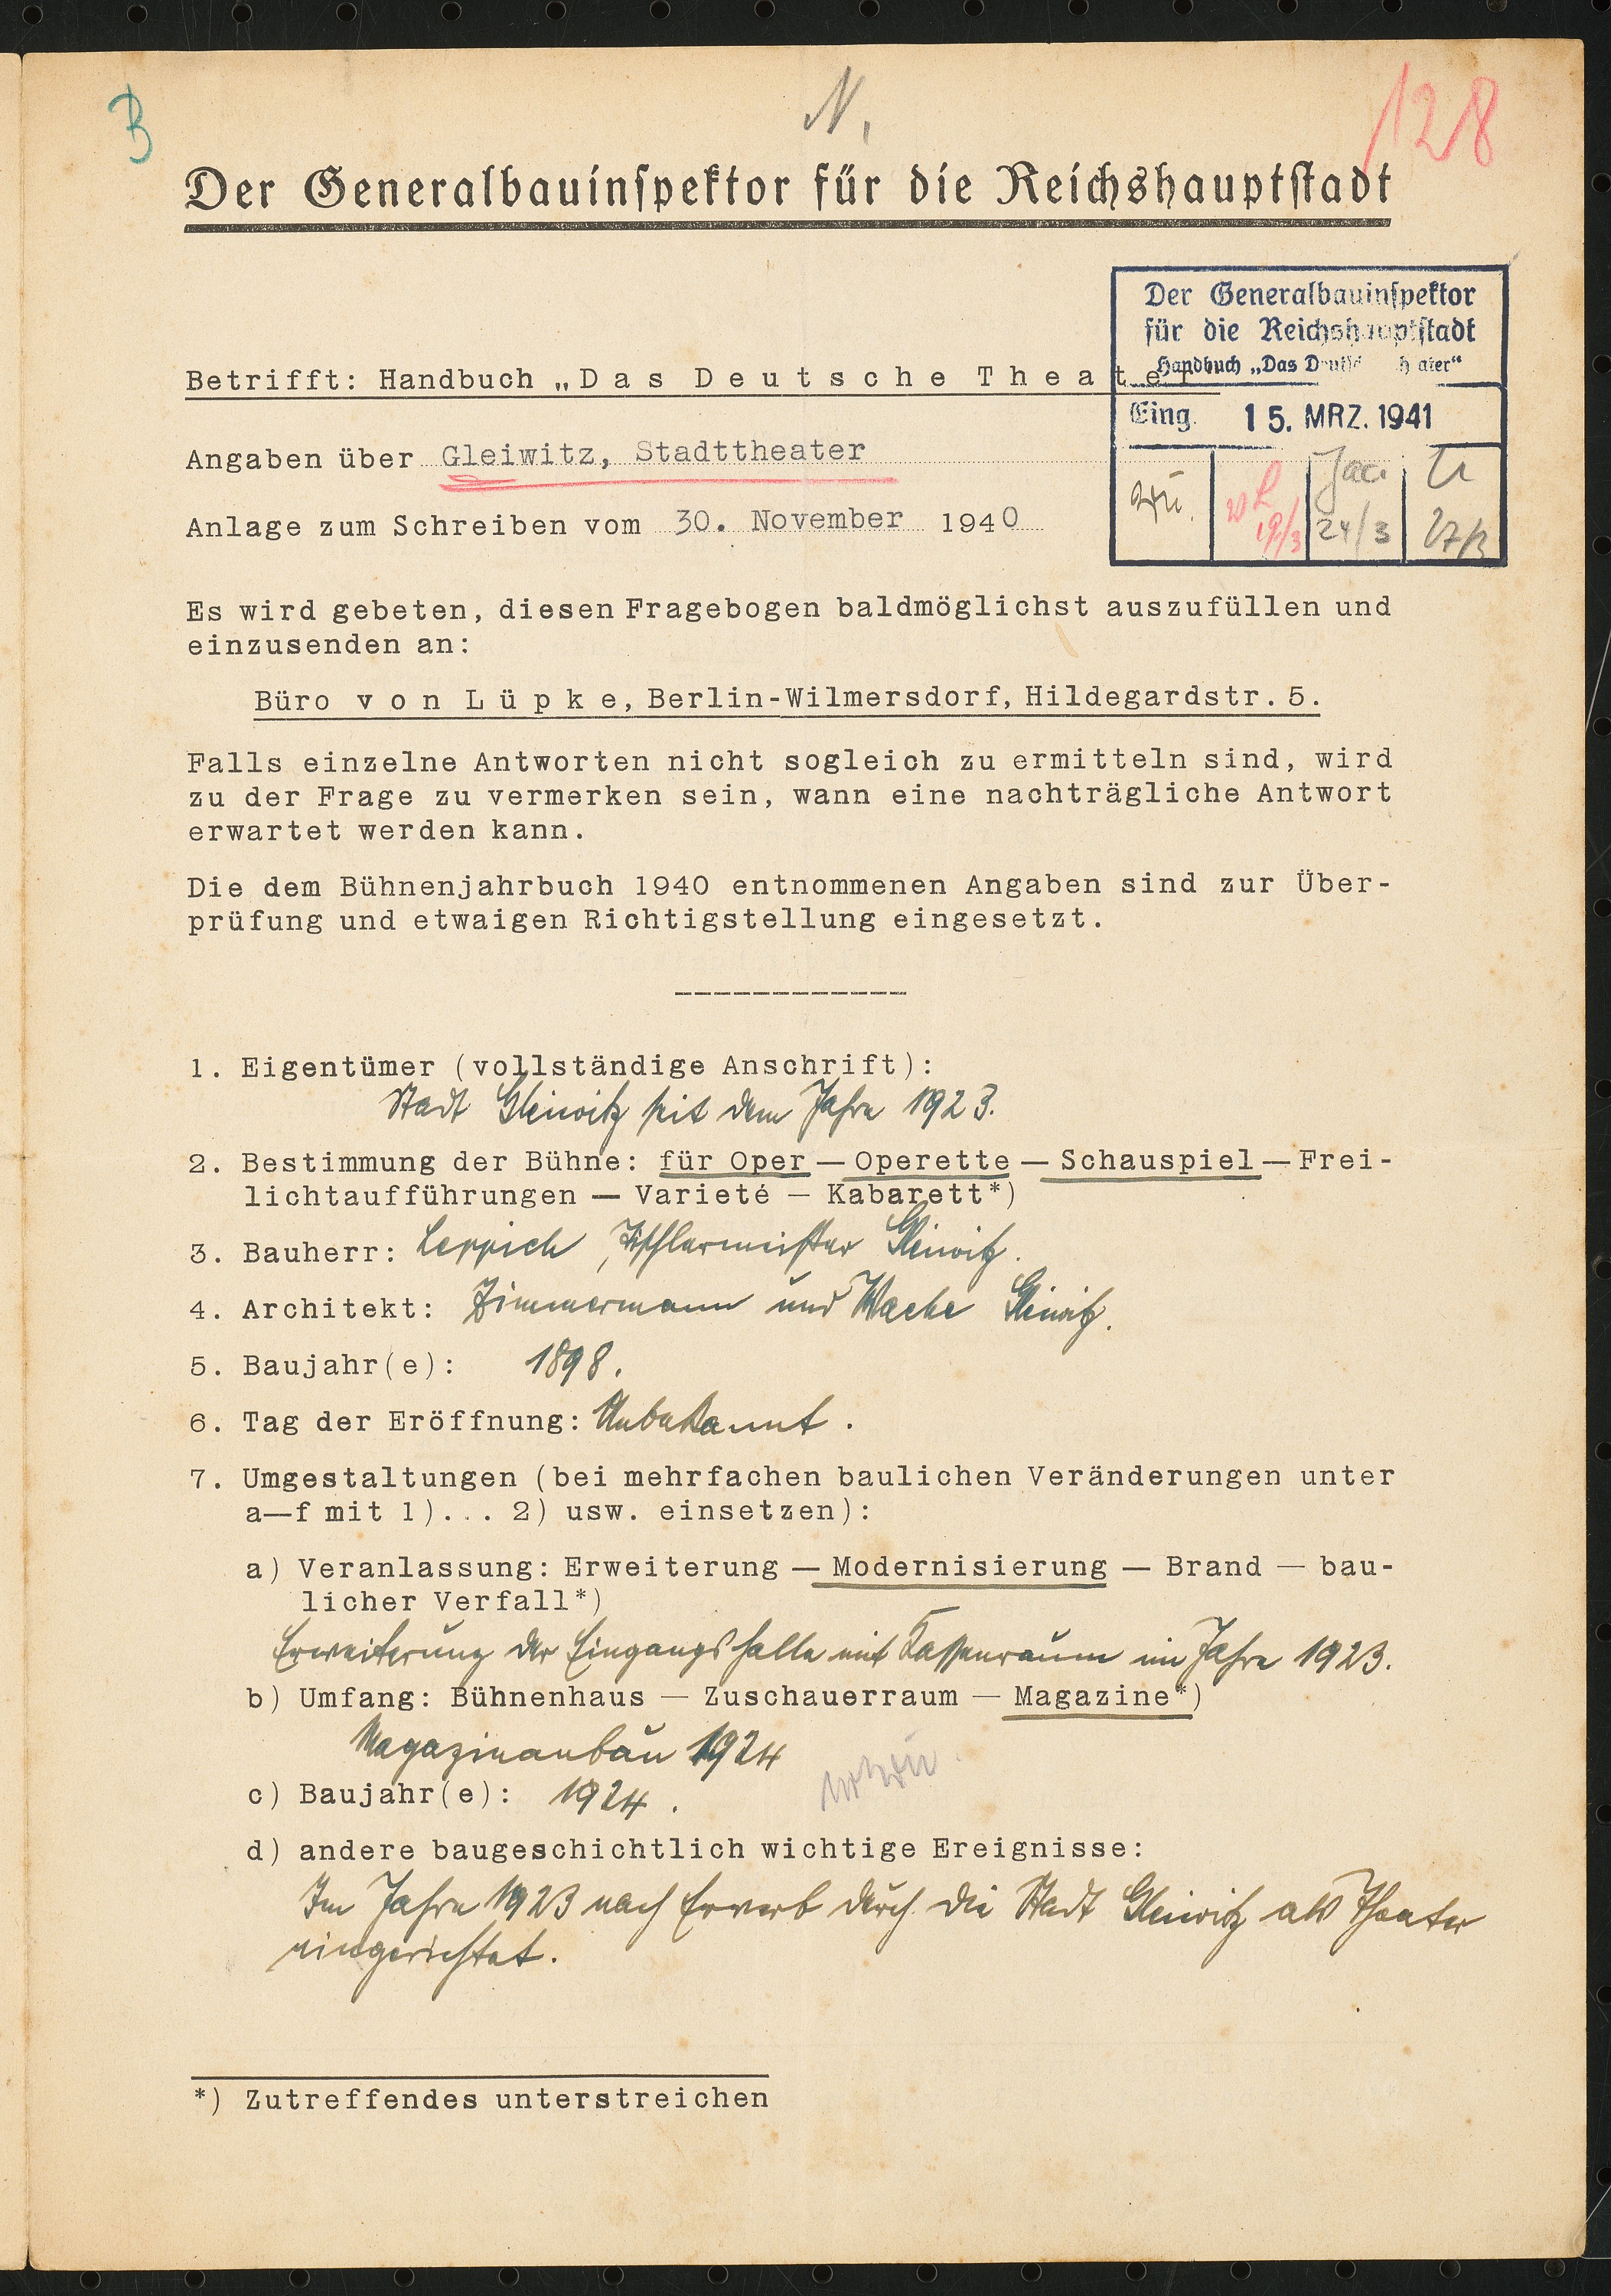 B
N.
128
Der Generalbauinspektor für die Reichshauptstadt
Der Generalbauinspektor
für die Reichshauptstadt
Handbuch „Das Deutsche Theater“
Eing. 15. MRZ. 1941
19/3 24/3 27/3
Betrifft: Handbuch „Das Deutsche Theater“
Angaben über Gleiwitz, Stadttheater
Anlage zum Schreiben vom 30. November 1940
Es wird gebeten, diesen Fragebogen baldmöglichst auszufüllen und
einzusenden an:
Büro von Lüpke, Berlin-Wilmersdorf, Hildegardstr. 5.
Falls einzelne Antworten nicht sogleich zu ermitteln sind, wird
zu der Frage zu vermerken sein, wann eine nachträgliche Antwort
erwartet werden kann.
Die dem Bühnenjahrbuch 1940 entnommenen Angaben sind zur Über-
prüfung und etwaigen Richtigstellung eingesetzt.
1. Eigentümer (vollständige Anschrift):
Stadt Gleiwitz seit dem Jahre 1923.
2. Bestimmung der Bühne: für Oper — Operette — Schauspiel — Frei-
lichtaufführungen — Varieté — Kabarett*)
3. Bauherr: Leppich, Tischlermeister Gleiwitz.
4. Architekt: Zimmermann und Gleiwitz.
5. Baujahr(e): 1898.
6. Tag der Eröffnung: Unbekannt.
7. Umgestaltungen (bei mehrfachen baulichen Veränderungen unter
a—f mit 1)... 2) usw. einsetzen):
a) Veranlassung: Erweiterung — Modernisierung — Brand — bau-
licher Verfall*)
Erweiterung der Eingangshalle mit Kassenraum im Jahre 1923.
b) Umfang: Bühnenhaus — Zuschauerraum — Magazine*)
Magazinanbau 1924
c) Baujahr(e): 1924.
d) andere baugeschichtlich wichtige Ereignisse:
Im Jahre 1923 nach Erwerb durch die Stadt Gleiwitz als Theater
eingerichtet.
*) Zutreffendes unterstreichen